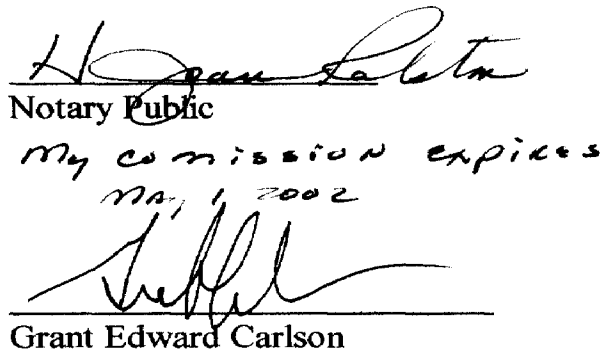 H Jean Ralston
Notary Public
My comission expires
May 1 2002
Grant Edward Carlson